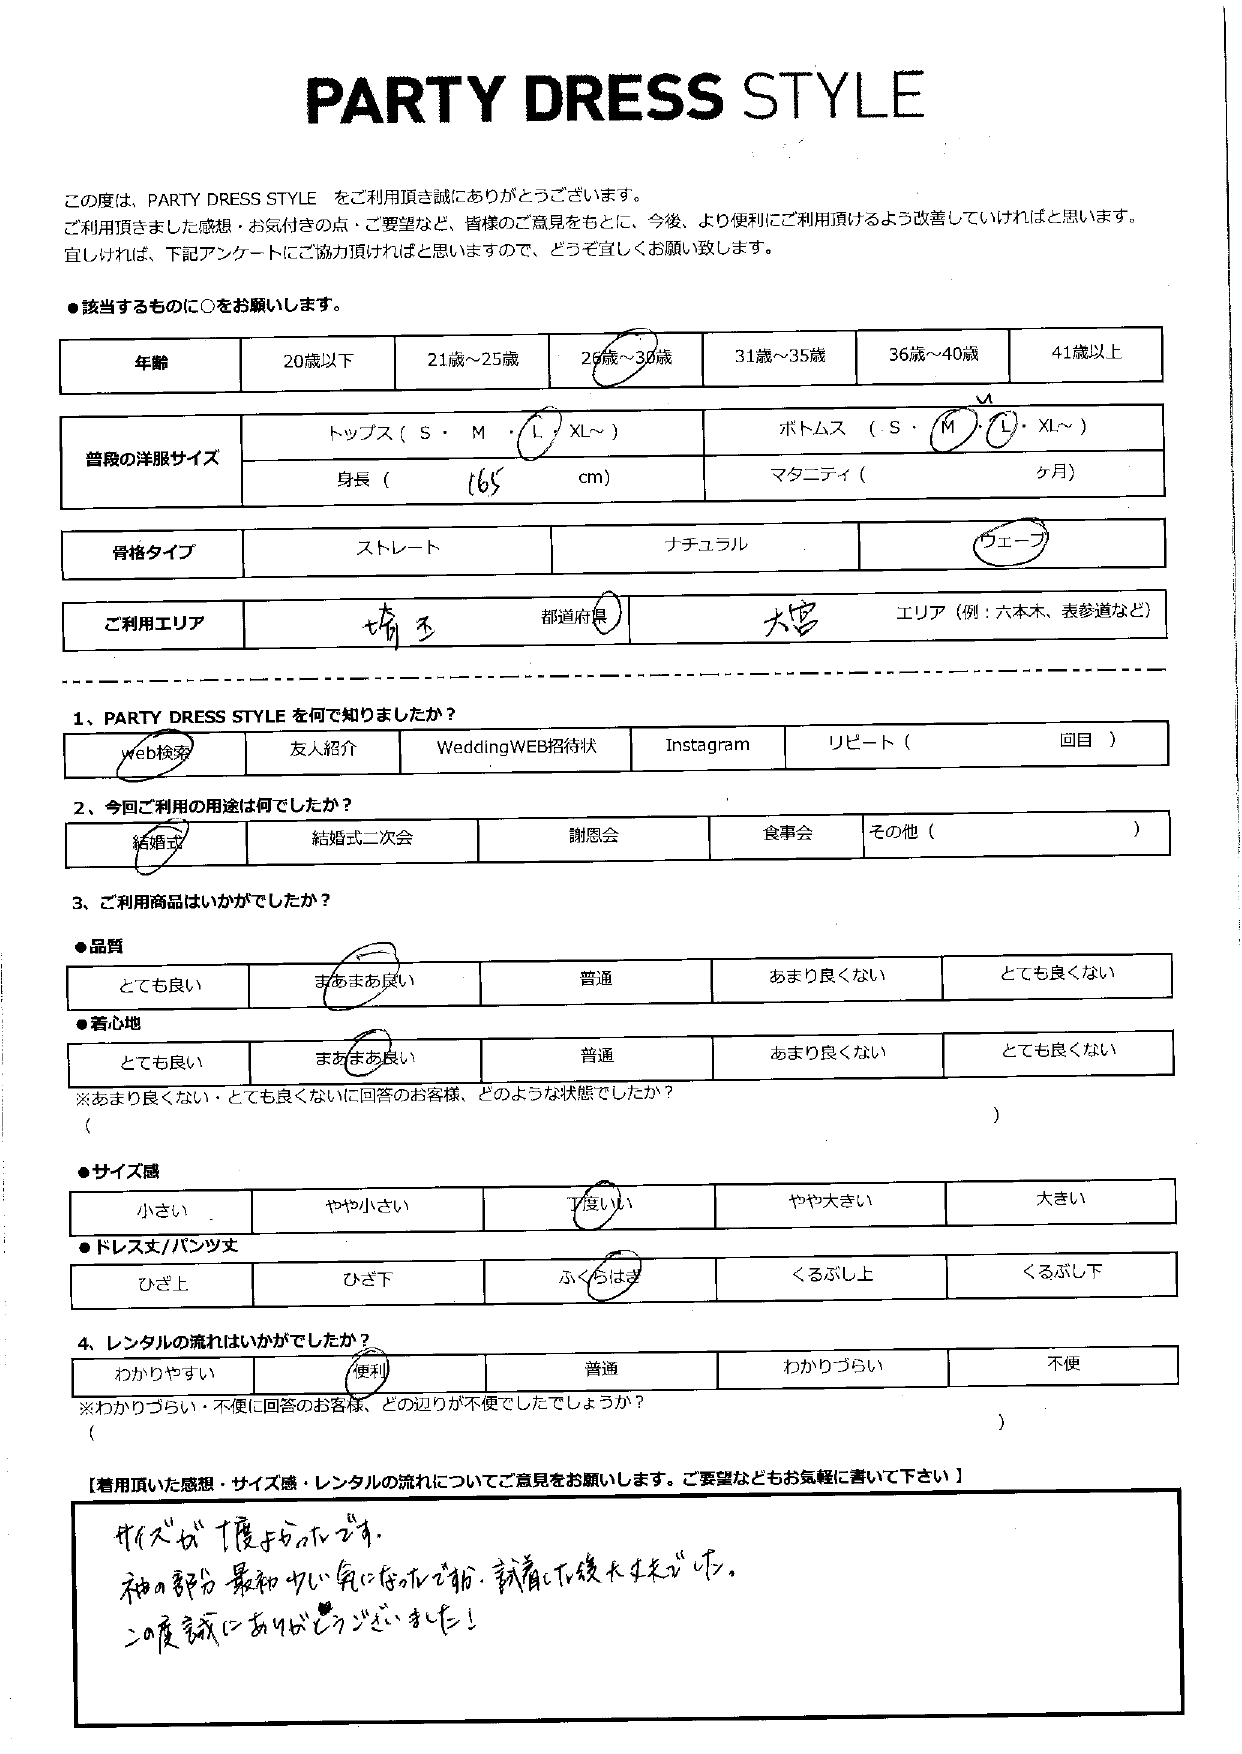 PARTY DRESS STYLE
この度は、PARTY DRESS STYLE をご利用頂き誠にありがとうございます。
ご利用頂きました感想・お気付きの点・ご要望など、皆様のご意見をもとに、今後、より便利にご利用頂けるよう改善していければと思います。
宜しければ、下記アンケートにご協力頂ければと思いますので、どうぞ宜しくお願い致します。
●該当するものに○をお願いします。
年齢 20歳以下 21歳～25歳 26歳～30歳 31歳～35歳 36歳～40歳 41歳以上
普段の洋服サイズ トップス ( S ・ M ・ L ・ XL～ ) ボトムス ( S ・ M ・ L ・ XL～ )
身長 ( 165 cm) マタニティ ( ヶ月)
骨格タイプ ストレート ナチュラル ウェーブ
ご利用エリア 埼玉 都道府県 大宮 エリア (例：六本木、表参道など)
1、PARTY DRESS STYLE を何で知りましたか？
web検索 友人紹介 WeddingWEB招待状 Instagram リピート ( 回目 )
2、今回ご利用の用途は何でしたか？
結婚式 結婚式二次会 謝恩会 食事会 その他 ( )
3、ご利用商品はいかがでしたか？
●品質
とても良い まあまあ良い 普通 あまり良くない とても良くない
●着心地
とても良い まあまあ良い 普通 あまり良くない とても良くない
※あまり良くない・とても良くないに回答のお客様、どのような状態でしたか？
( )
●サイズ感
小さい やや小さい 丁度いい やや大きい 大きい
●ドレス丈/パンツ丈
ひざ上 ひざ下 ふくらはぎ くるぶし上 くるぶし下
4、レンタルの流れはいかがでしたか？
わかりやすい 便利 普通 わかりづらい 不便
※わかりづらい・不便に回答のお客様、どの辺りが不便でしたでしょうか？
( )
【着用頂いた感想・サイズ感・レンタルの流れについてご意見をお願いします。ご要望などもお気軽に書いて下さい 】
サイズが丁度よかったです.
袖の部分 最初少し気になったですが、試着した後大丈夫でした。
この度誠にありがとうございました!